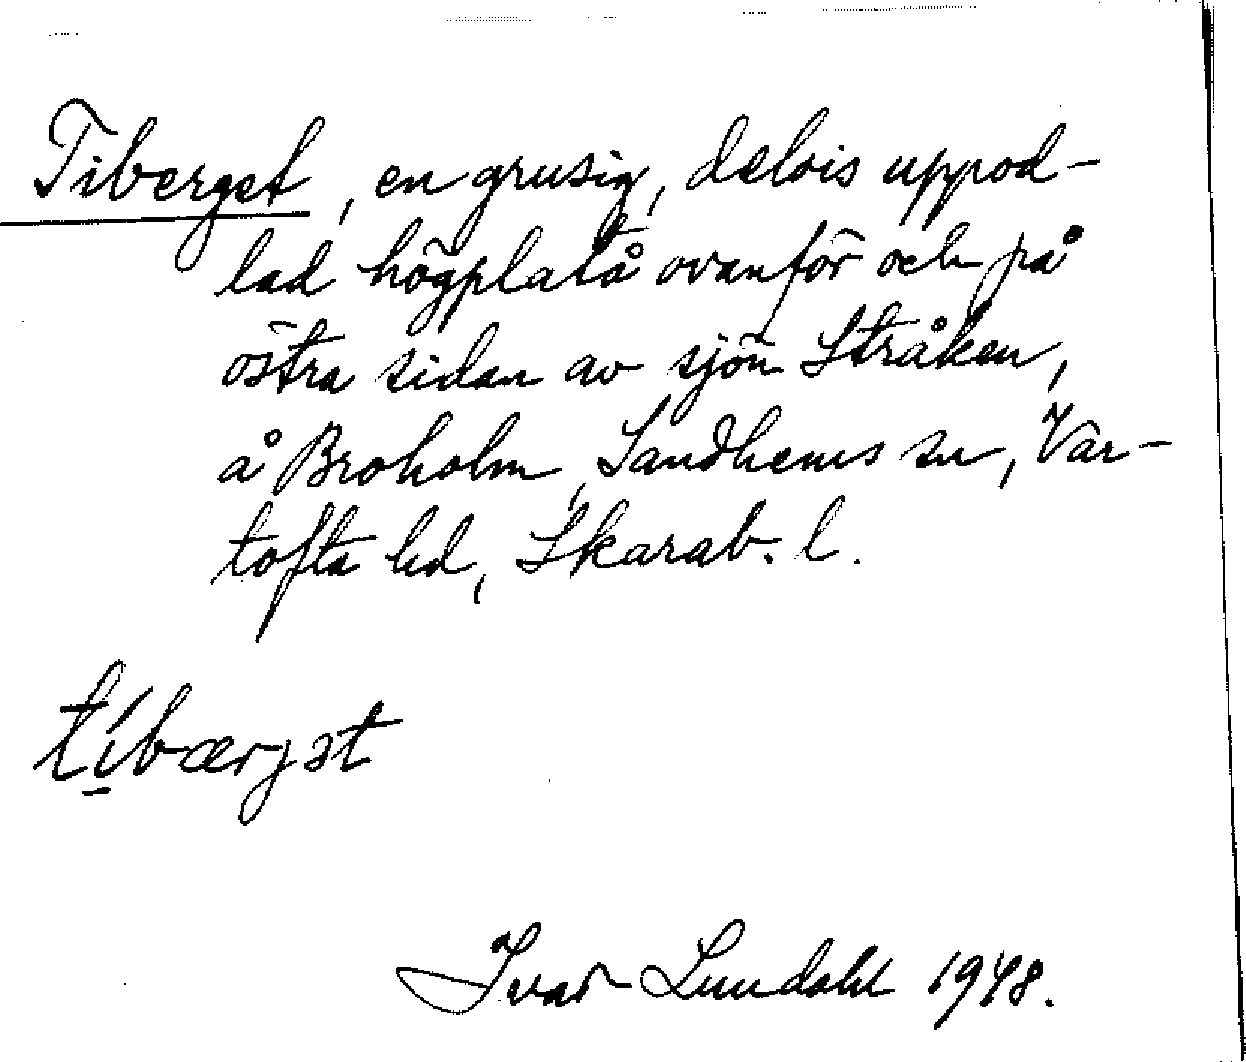 Tiberget, en grusig, delvis uppod-
lad högplatå ovanför och på
östra sidan av sjön Stråken,
å Broholm, Sandhems sn, Var-
tofta hd, Skarab. l.
tíbærjət
Ivar Lundahl 1948.